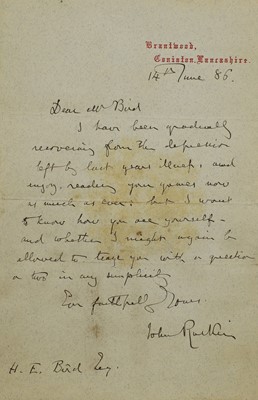 Brantwood,
Coniston, Lancashire.
14th June 86.
Dear Mr Bird
I have been gradually
recovering from the depression
left by last years illness, and
enjoy reading your games now
as much as ever: but I want
to know how you are yourself –
and whether I might again be
allowed to tease you with a question
or two in any simplicity
Ever faithfully Yours
John Ruskin
H. E. Bird Esq.